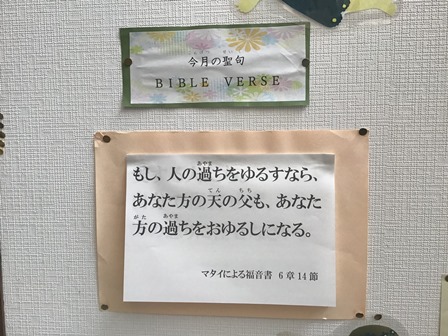 今月の聖句
BIBLE VERSE
もし、人の過ちをゆるすなら、
あなた方の天の父も、あなた
方の過ちをおゆるしになる。
マタイによる福音書 6章14節